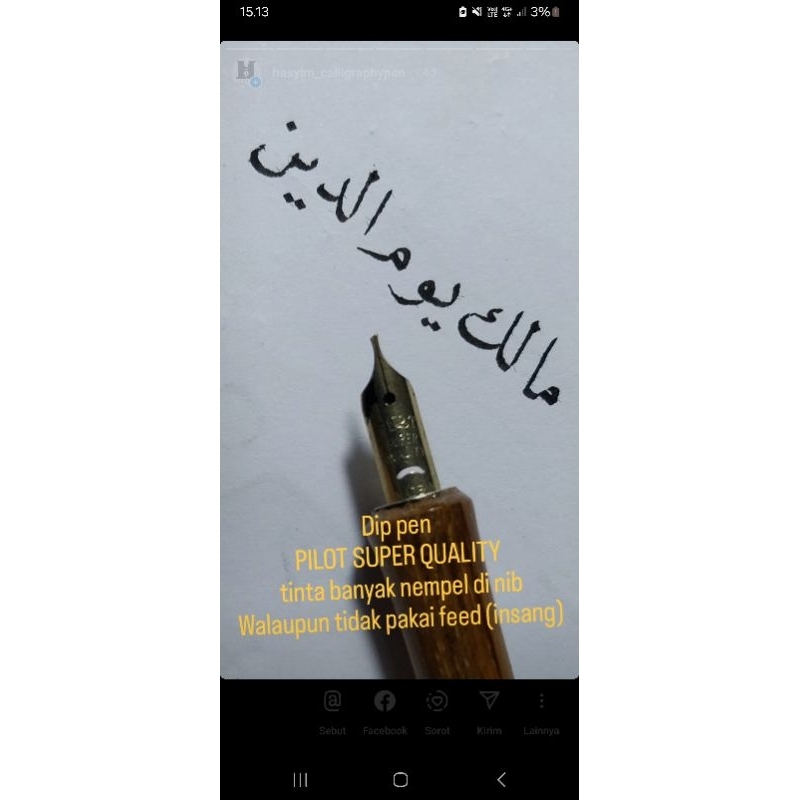 15.13
3%
haayim_calligraphypen
مالك يوم الدين
Dip pen
PILOT SUPER QUALITY
tinta banyak nempel di nib
Walaupun tidak pakai feed (insang)
Sebut Facebook Sorot Kirim Lainnya